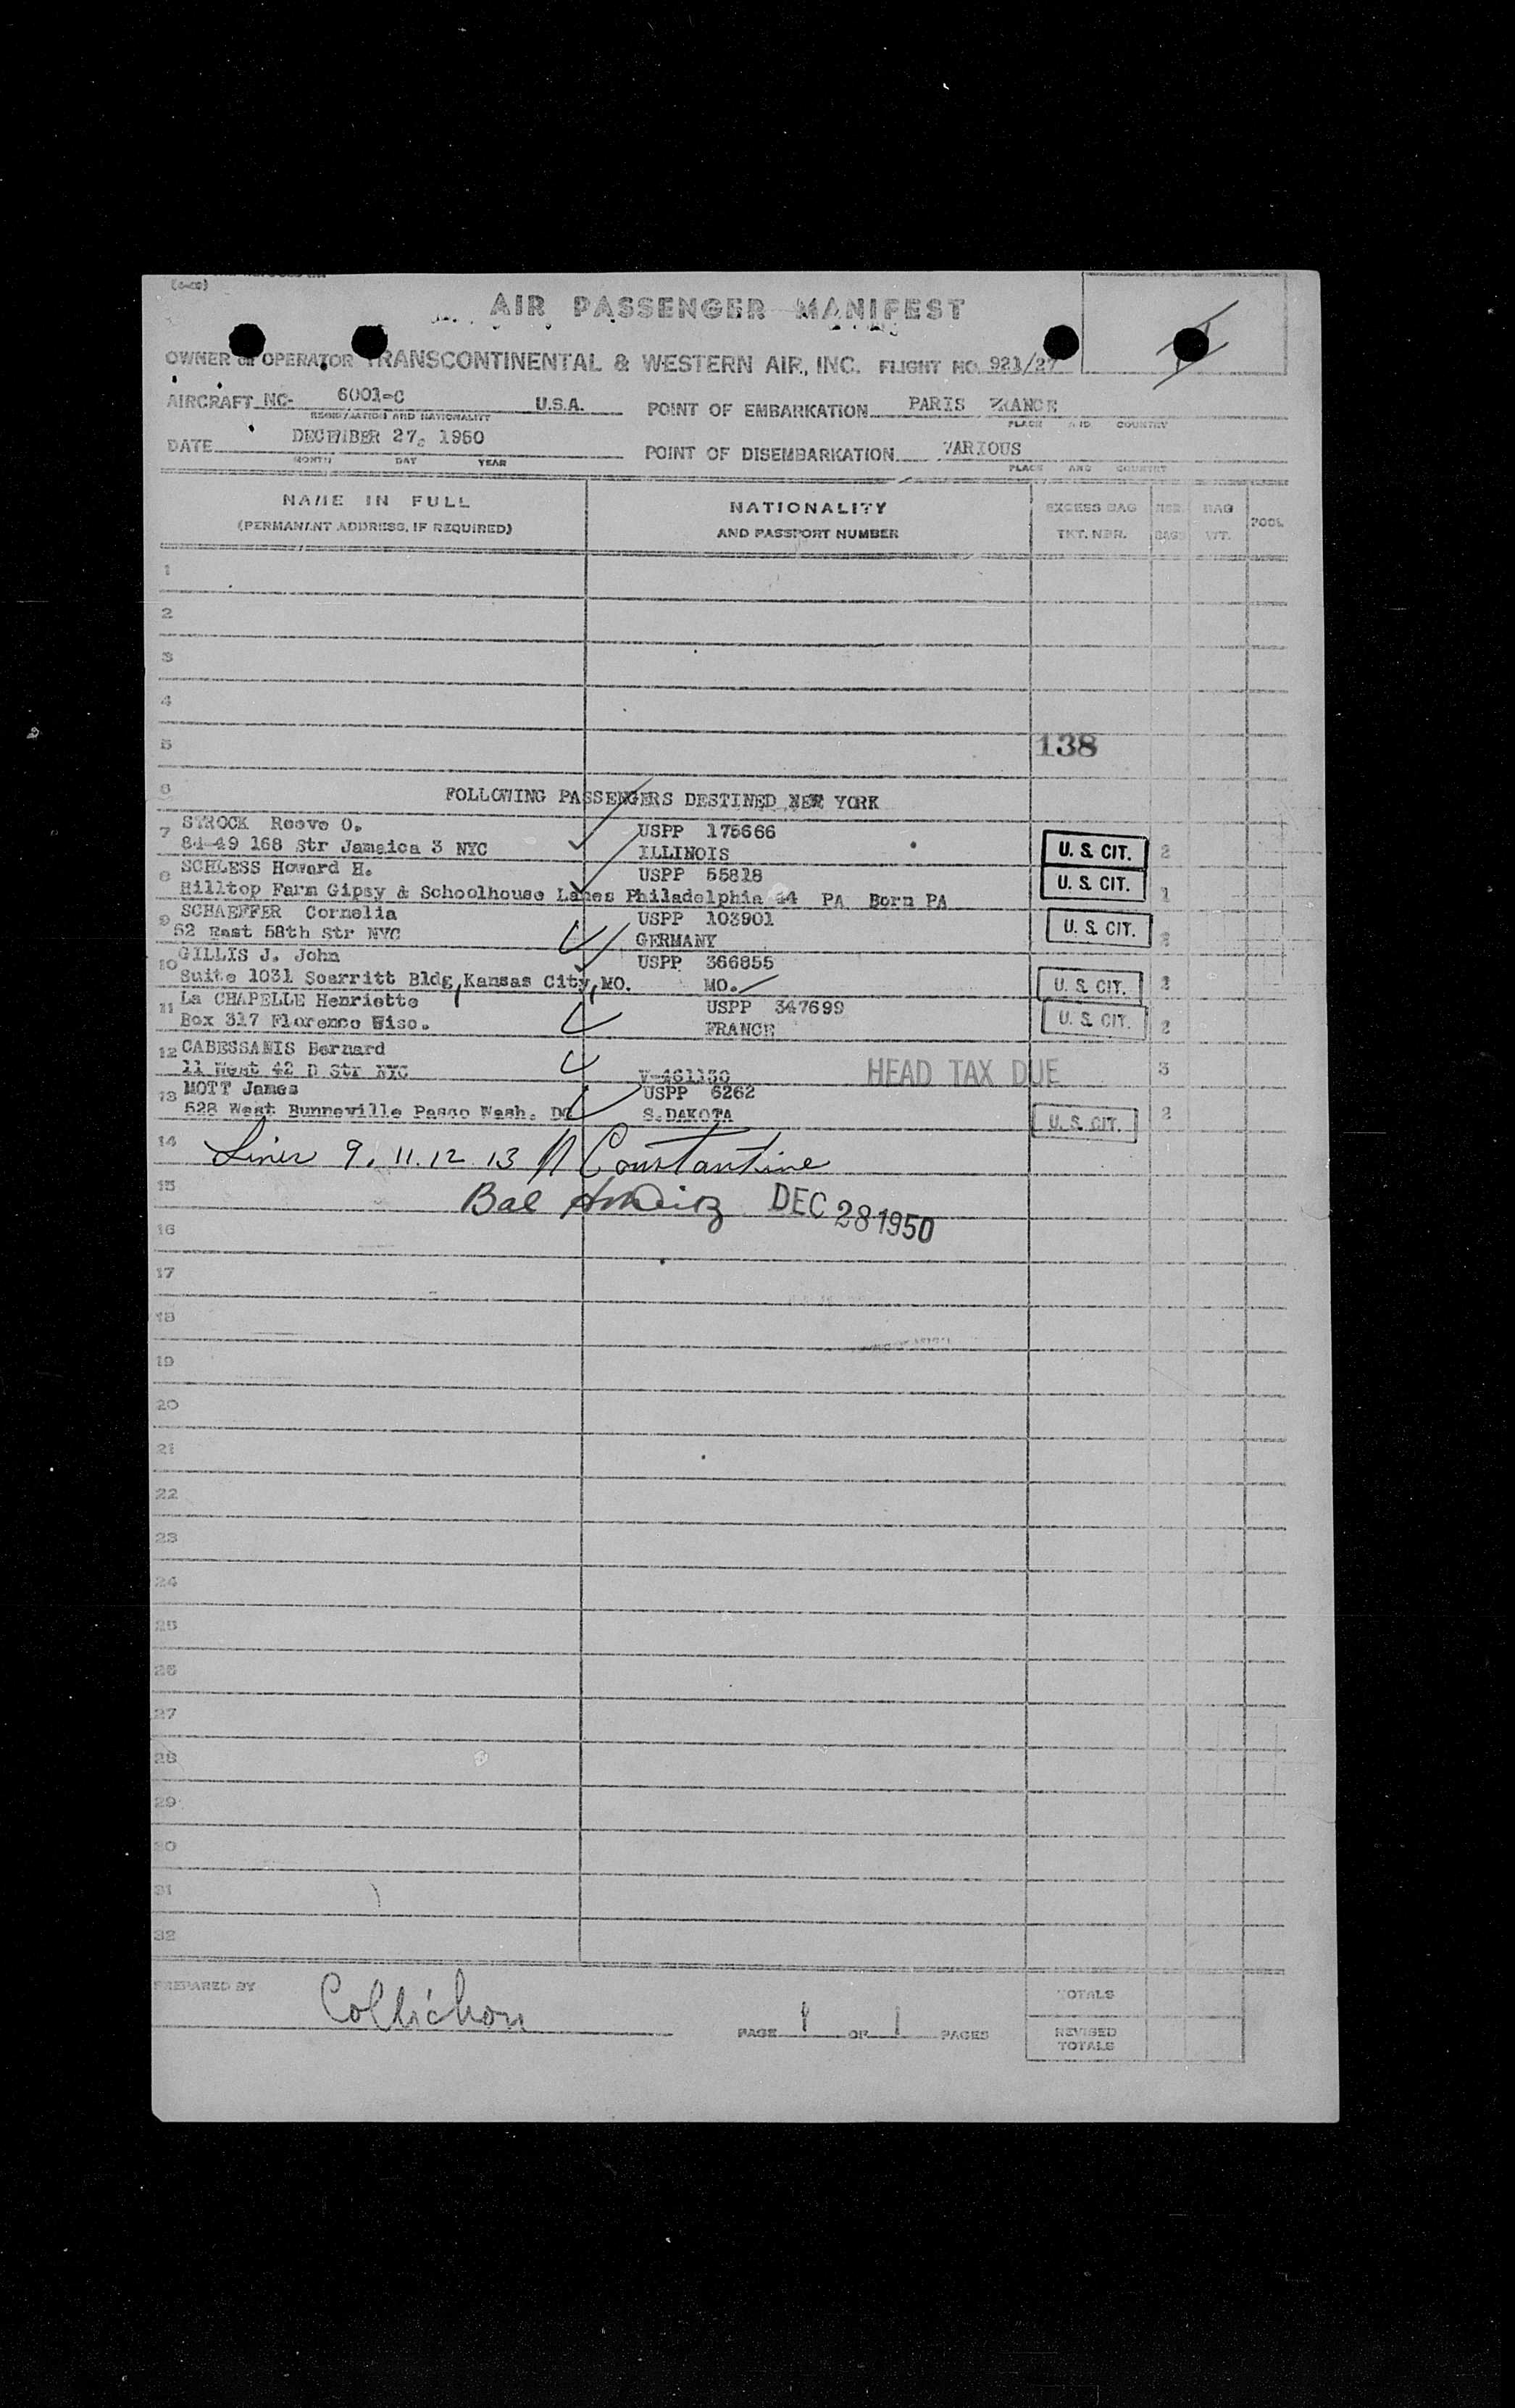 AIR PASSENGER MANIFEST
OWNER OR OPERATOR TRANSCONTINENTAL & WESTERN AIR, INC. FLIGHT NO. 921/27
AIRCRAFT NO. 6001-C U.S.A. POINT OF EMBARKATION PARIS FRANCE
REGISTRATION AND NATIONALITY PLACE AND COUNTRY
DATE DECEMBER 27, 1950 POINT OF DISEMBARKATION VARIOUS
MONTH DAY YEAR PLACE AND COUNTRY
NAME IN FULL NATIONALITY EXCESS BAG NBR. BAG POOL
(PERMANANT ADDRESS, IF REQUIRED) AND PASSPORT NUMBER TKT. NBR. BAGS WT.
1
2
3
4
5 138
6 FOLLOWING PASSENGERS DESTINED NEW YORK
7 STROCK Reeve O. USPP 175666
84-49 168 Str Jamaica 3 NYC ILLINOIS U. S. CIT. 2
8 SCHLESS Howard H. USPP 55818
Hilltop Farm Gipsy & Schoolhouse Lanes Philadelphia 44 PA Born PA U. S. CIT. 1
9 SCHAEFFER Cornelia USPP 103901
52 East 58th Str NYC GERMANY U. S. CIT.
10 GILLIS J. John USPP 366855
Suite 1031 Scarritt Bldg, Kansas City, MO. MO. U. S. CIT.
11 La CHAPELLE Henriette USPP 347699
Box 317 Florence Wisc. FRANCE U. S. CIT. 2
12 CABESSANIS Bernard
11 West 42 D Str NYC V-461130 HEAD TAX DUE 3
13 MOTT James USPP 6262
528 West Bunneville Pasco Wash. DC S.DAKOTA U. S. CIT. 2
14 Lines 9. 11. 12 13 Constantine
15 Bal DEC 28 1950
16
17
18
19
20
21
22
23
24
25
26
27
28
29
30
31
32
PREPARED BY Collichon TOTALS
PAGE 1 OF 1 PAGES REVISED TOTALS